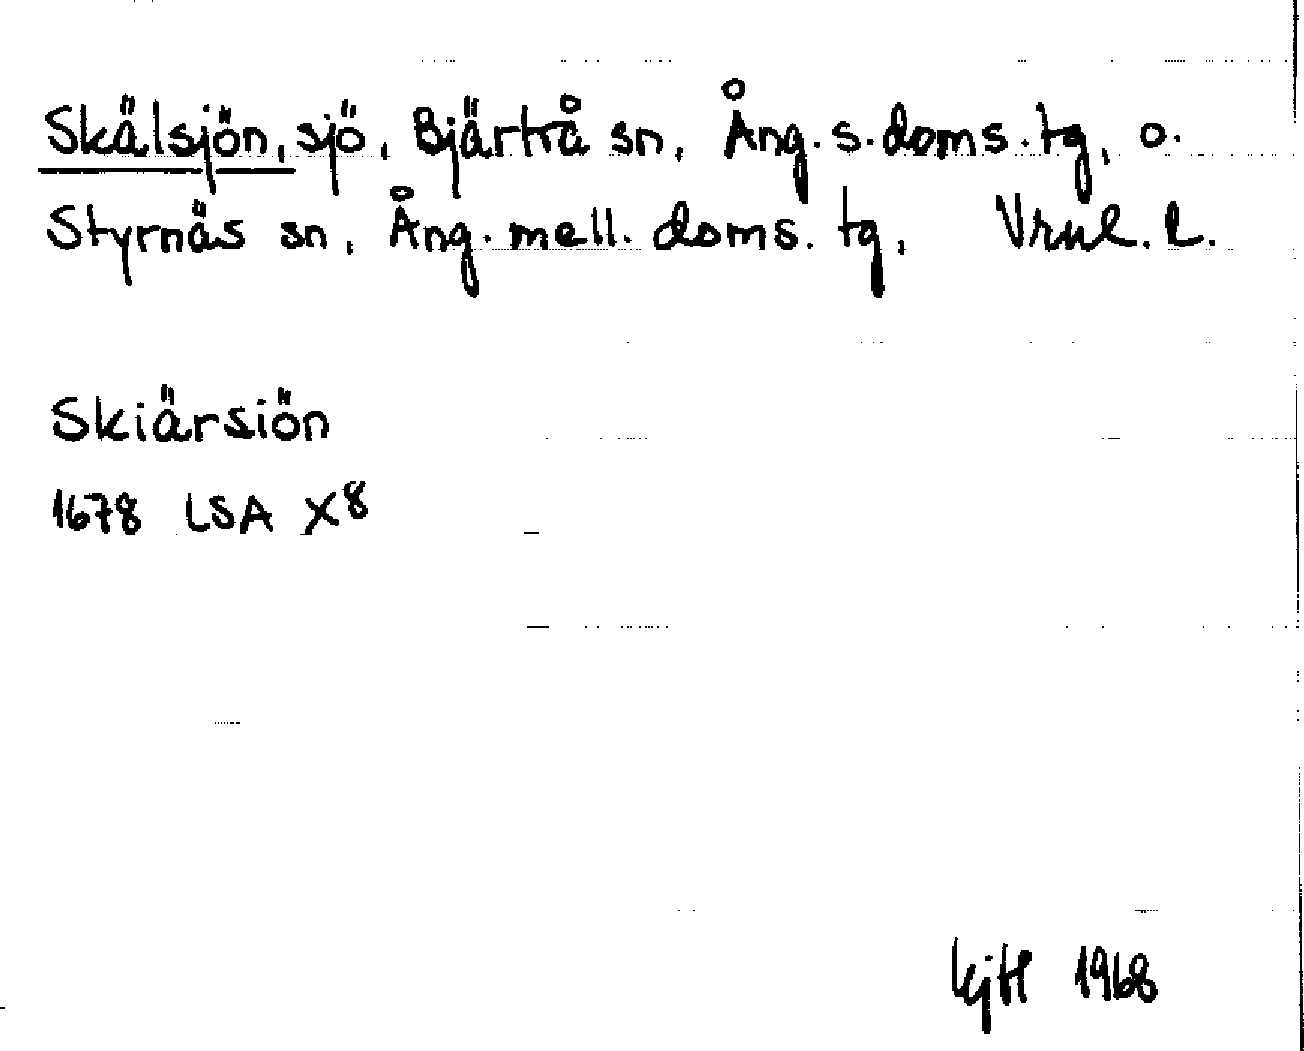 Skälsjön, sjö, Bjärtrå sn, Ång. s. doms. tg, o.
Styrnäs sn, Ång. mell. doms. tg, Vrnl. l.
Skiärsiön
1678 LSA X8
kjH 1968